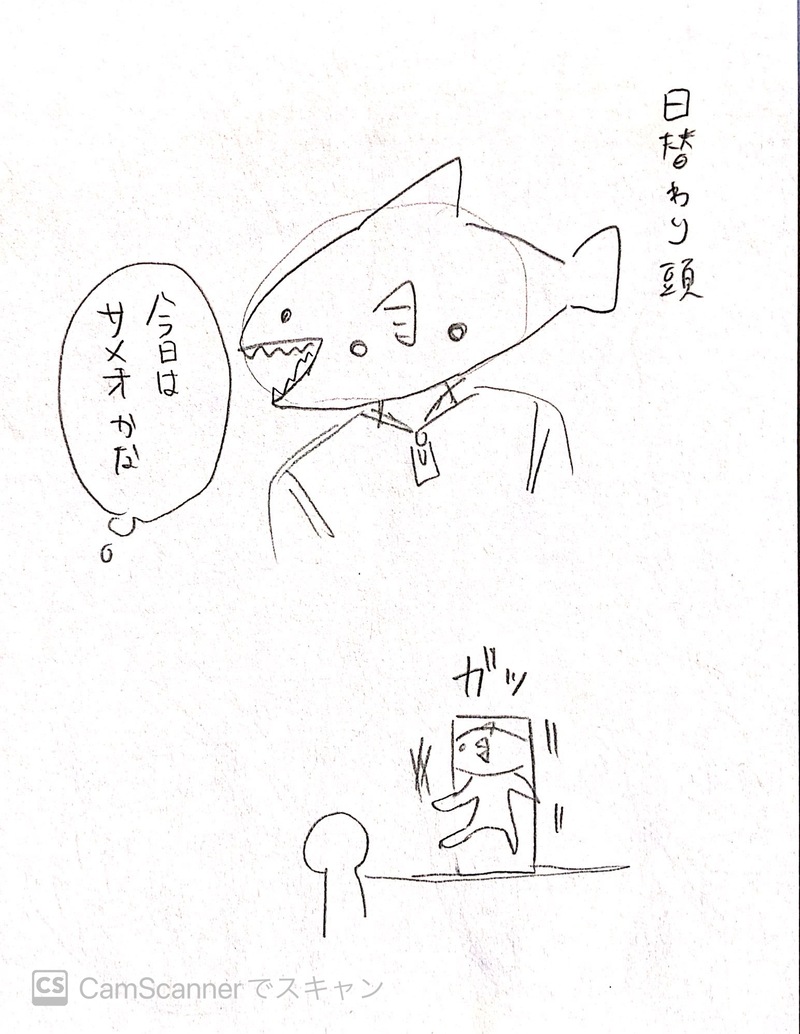 日替わり頭
今日は
サメオかな
ガッ
CS CamScannerでスキャン